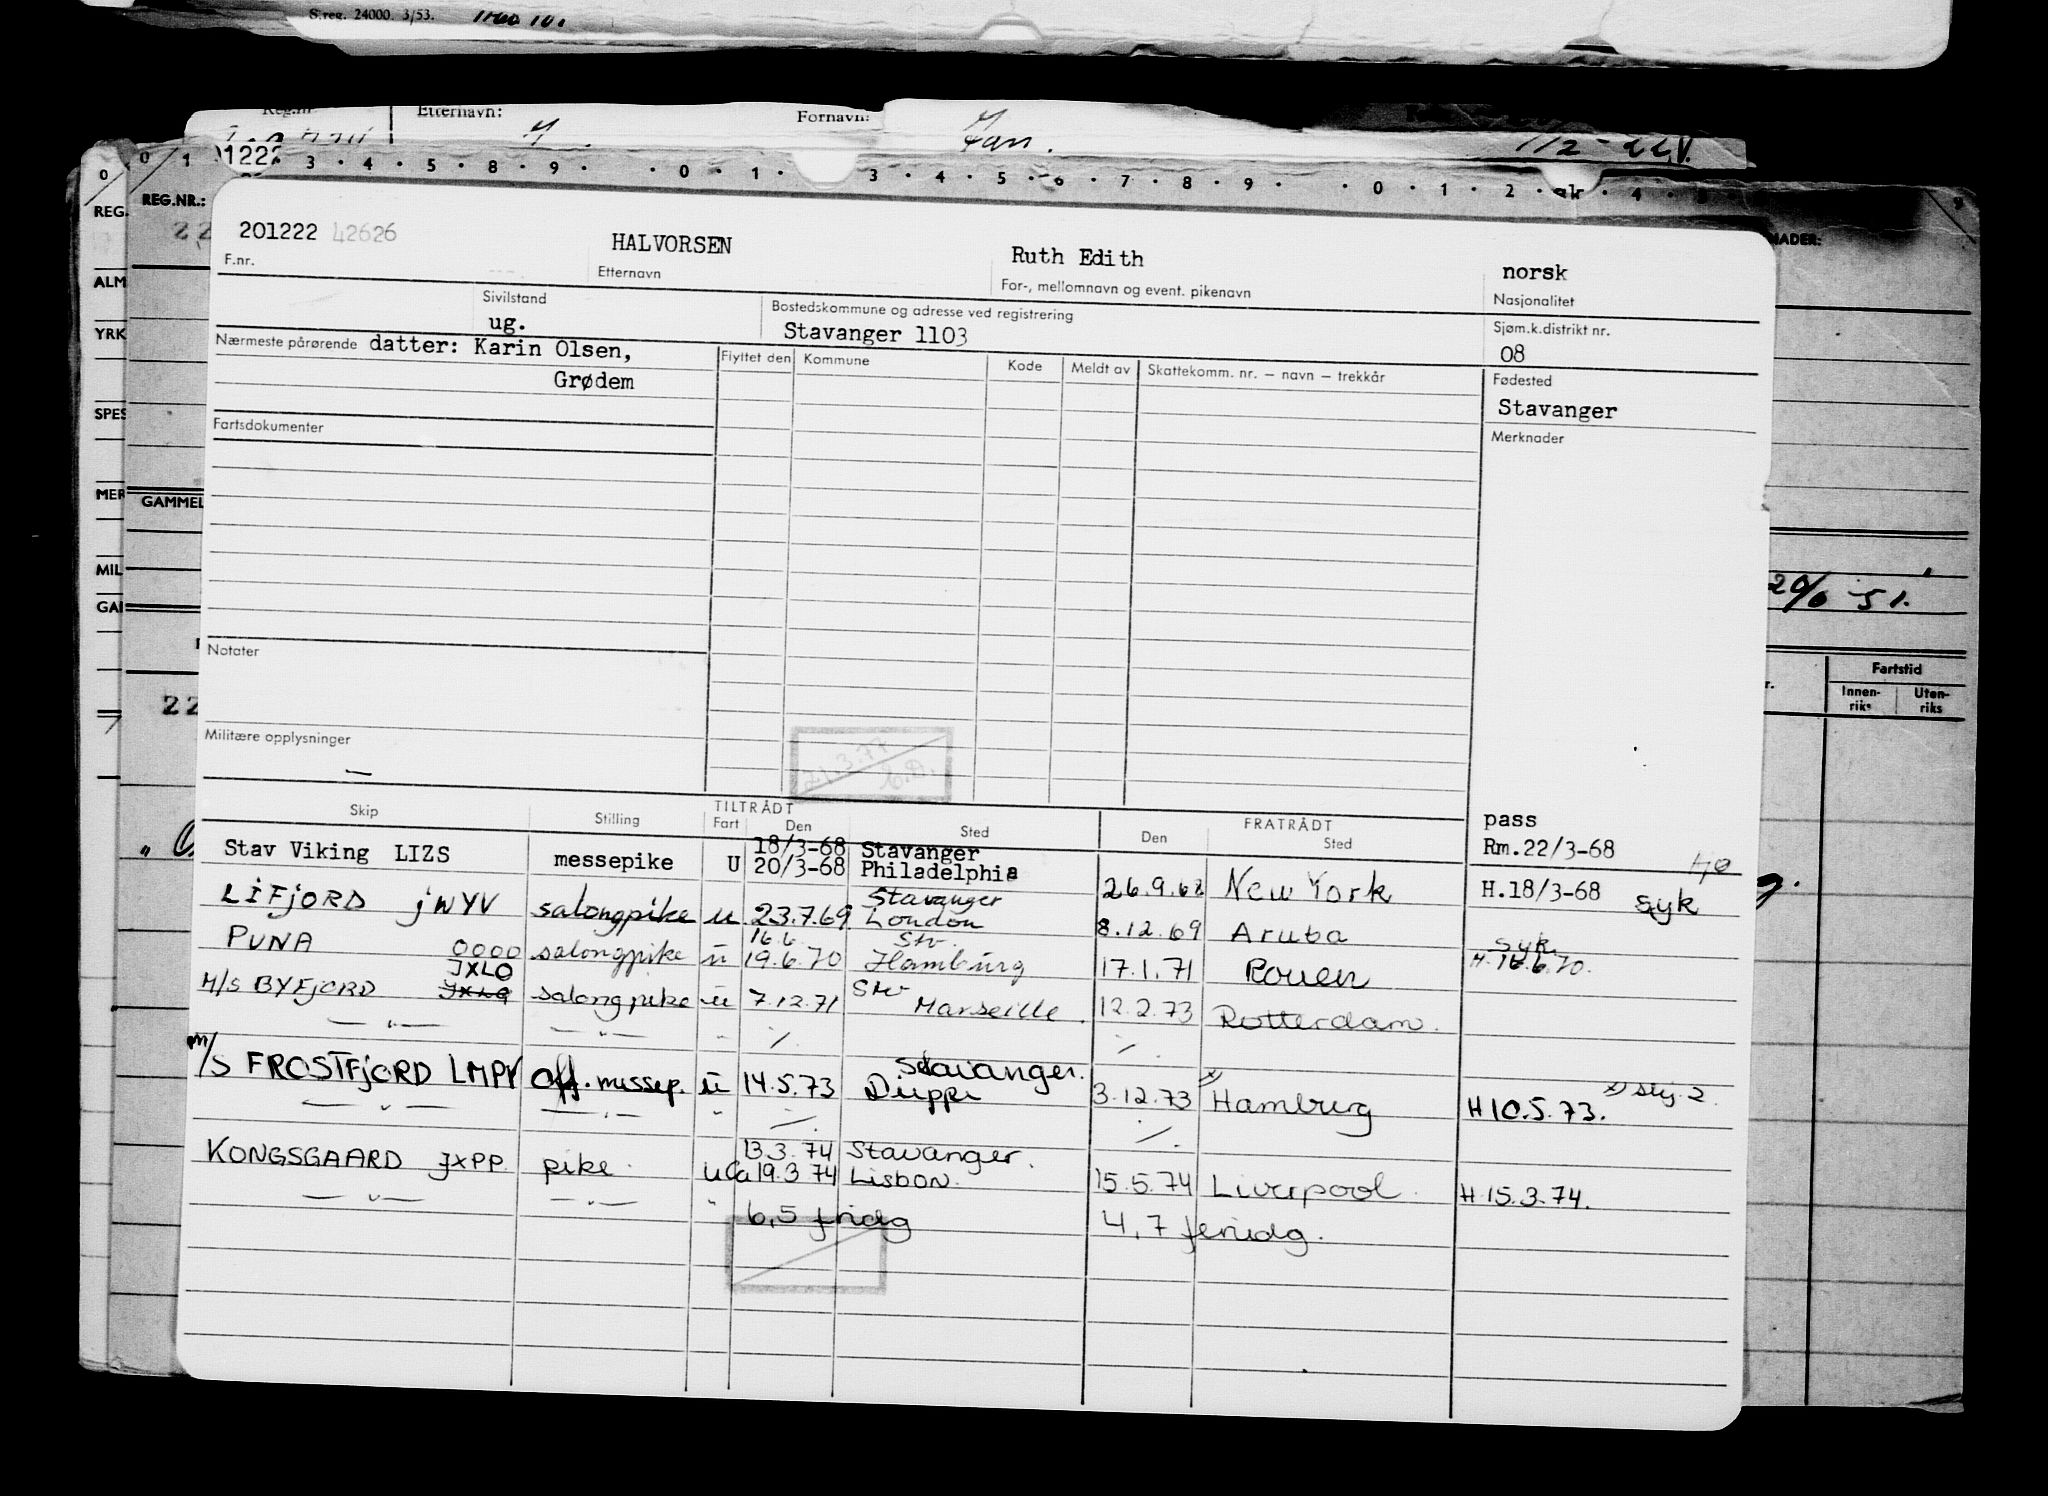 S.reg. 24000. 3/53.
Reg.nr. Etternavn: Fornavn:
H. Jan.
01222
0 1 3 4 5 8 9 0 1 3 4 5 6 7 8 9 0 1 2 4
REG. REG.NR.: MADER:
201222 42626 HALVORSEN Ruth Edith norsk
F.nr. Etternavn For-, mellomnavn og event. pikenavn Nasjonalitet
ALM
Sivilstand Bostedskommune og adresse ved registrering Sjøm.k.distrikt nr.
ug. Stavanger 1103 08
YRK
Nærmeste pårørende datter: Karin Olsen, Flyttet den Kommune Kode Meldt av Skattekomm. nr. — navn — trekkår Fødested
Grødem Stavanger
SPES
Fartsdokumenter Merknader
MER GAMMEL
MIL
GAI
20/6 51.
Notater
Fartstid
Innen-riks Uten-riks
22
Militære opplysninger
—
21.3.77
Skip Stilling TILTRÅDT Fart Den Sted FRATRÅDT Den Sted
pass
Stav Viking LIZS messepike U 18/3-68 Stavanger Rm.22/3-68
20/3-68 Philadelphia 26.9.68 New York H.18/3-68 syk
LIFJORD JWYV salongpike u 23.7.69 Stavanger London 8.12.69 Aruba
PUNA OOOO salongpike u 16.6 Stv. syk
19.6.70 Hamburg 17.1.71 Rouen H.16.6.70.
JXLO
M/S BYFJORD JXLO salongpike u 7.12.71 Stv Marseille. 12.2.73 Rotterdam.
— " — — " — " ./. ./.
M/S FROSTFJORD LMPV Off. messep. u 14.5.73 Stavanger. Dieppe 3.12.73 x) Hamburg H 10.5.73. x) stj. 2.
— " — — " — " ./. ./.
KONGSGAARD JXPP. pike. uCa 13.3.74 Stavanger.
19.3 74 Lisbon. 15.5.74 Liverpool. H.15.3.74.
— " — — " — "
6,5 fridg 4,7 feriedg.